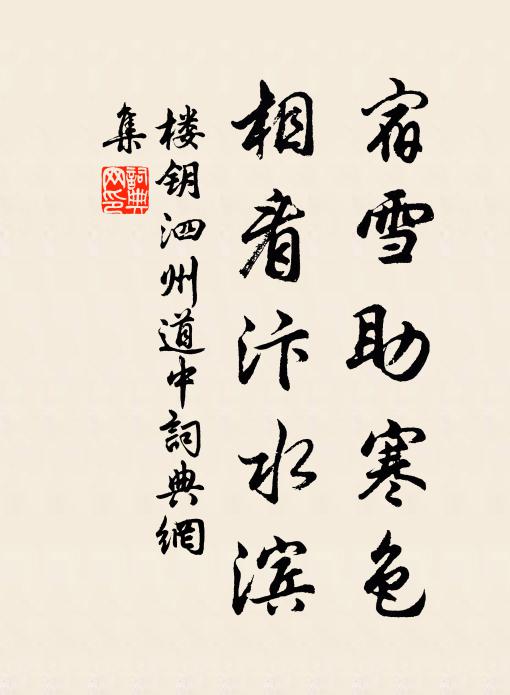 宿雪助寒色
相看汴水滨
楼钥泗州道中詞典網
集
詞典網印